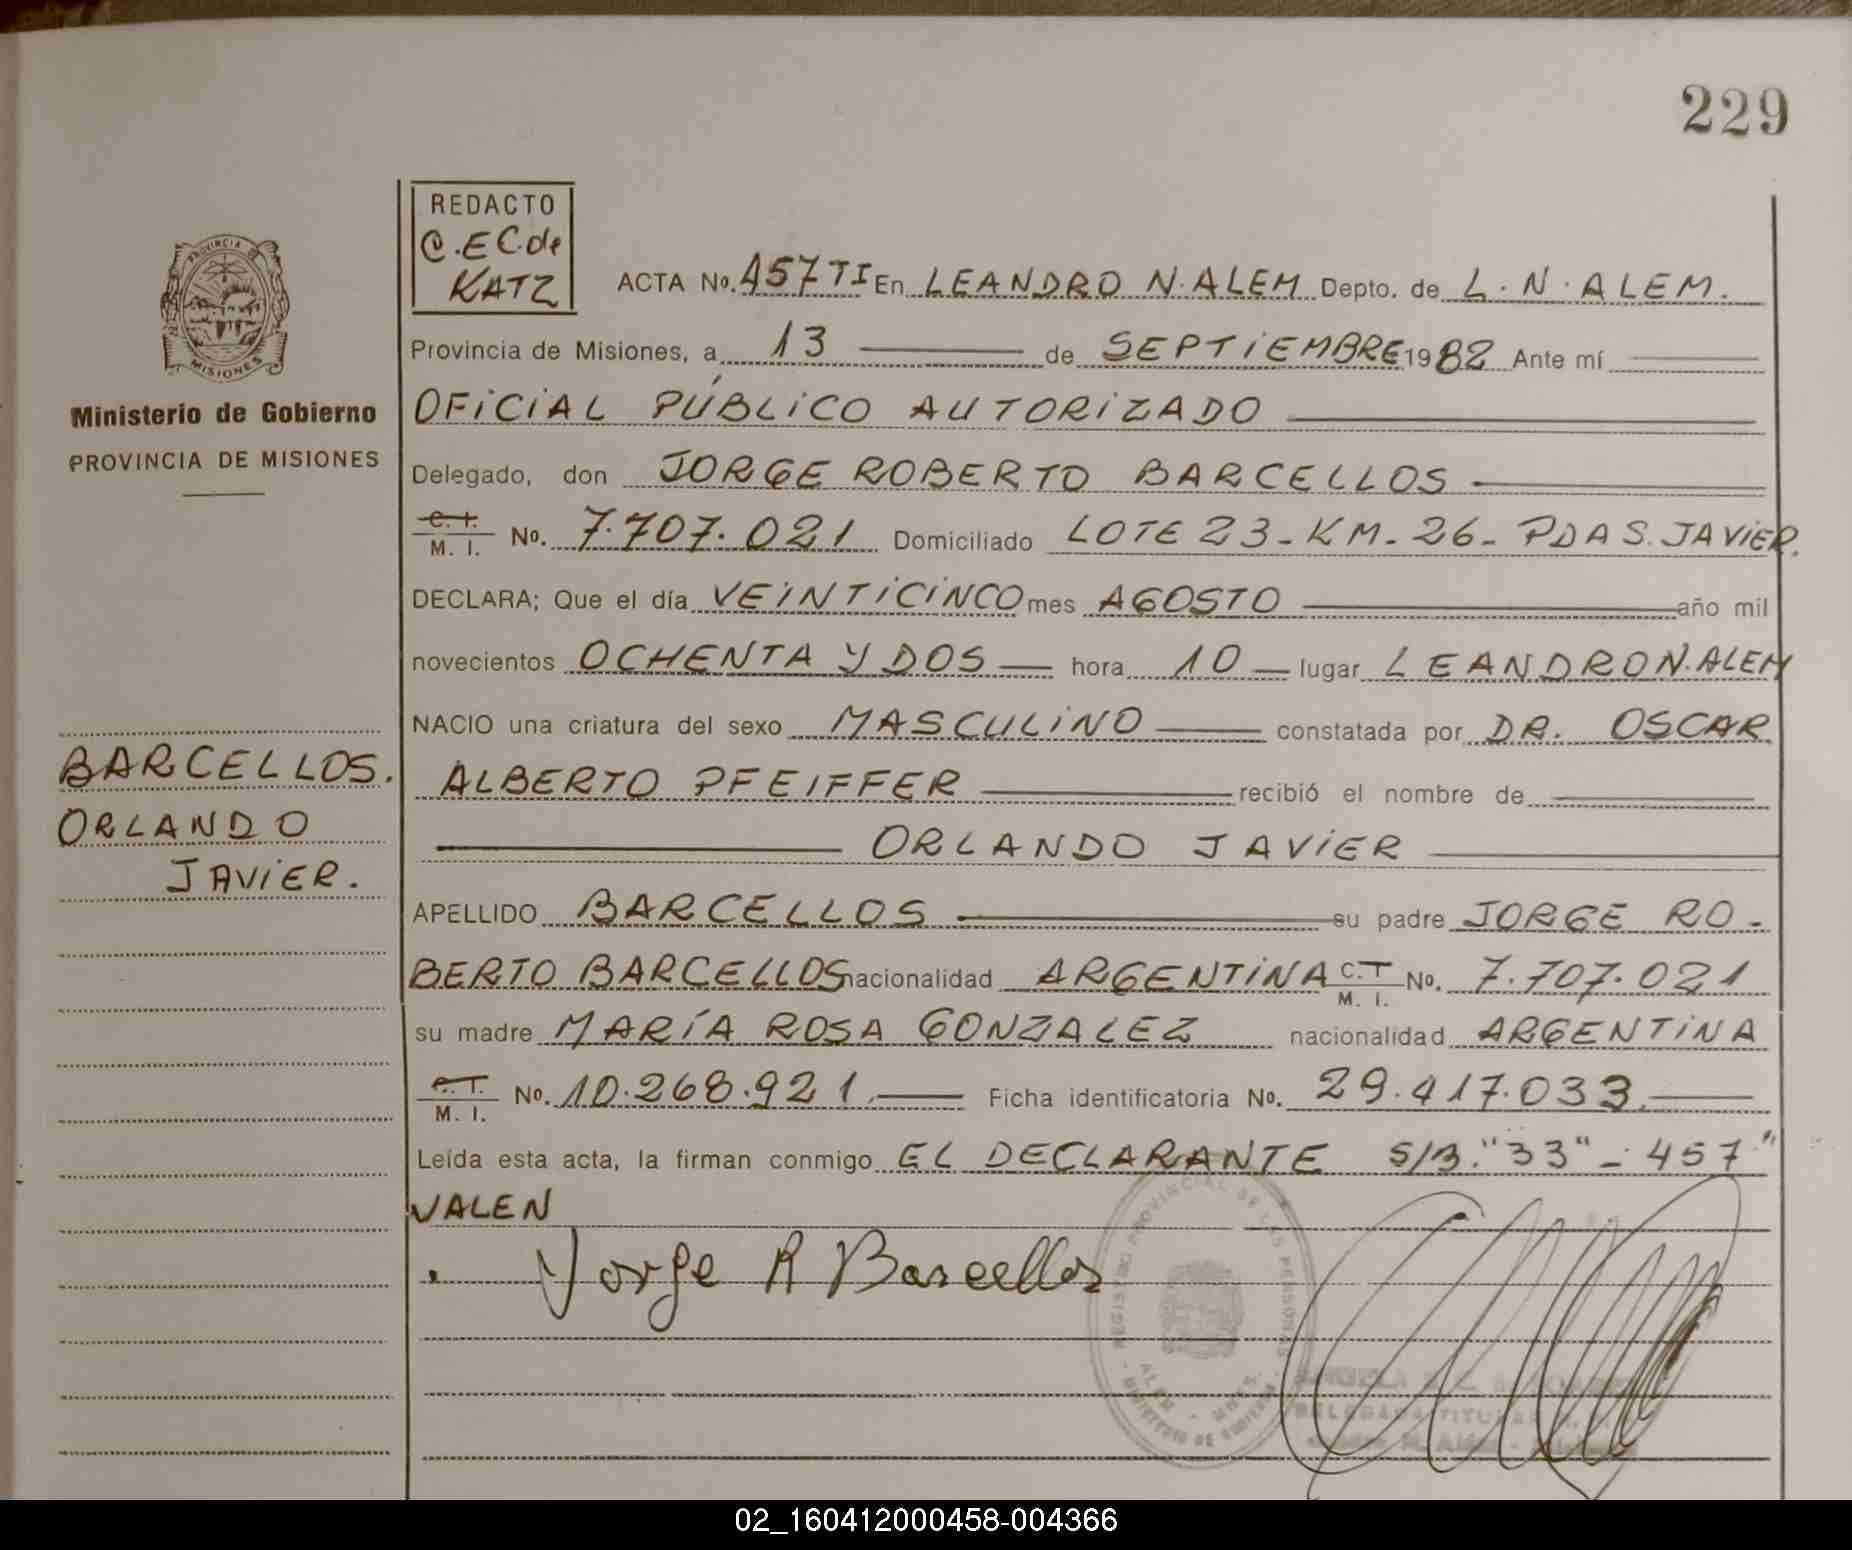 229
REDACTO
C.EC.de
KATZ
ACTA No. 457 TI En LEANDRO N. ALEM Depto. de L. N. ALEM.
Provincia de Misiones, a 13 de SEPTIEMBRE 1982 Ante mí
OFICIAL PÚBLICO AUTORIZADO
Delegado, don JORGE ROBERTO BARCELLOS
C. I. M. I. No. 7.707.021 Domiciliado LOTE 23 - KM - 26 - PDA S. JAVIER.
DECLARA; Que el día VEINTICINCO mes AGOSTO año mil
novecientos OCHENTA Y DOS hora 10 lugar LEANDRO N. ALEM
NACIO una criatura del sexo MASCULINO constatada por DR. OSCAR
ALBERTO PFEIFFER recibió el nombre de
ORLANDO JAVIER
APELLIDO BARCELLOS su padre JORGE RO-
BERTO BARCELLOS nacionalidad ARGENTINA C.T M. I. No. 7.707.021
su madre MARÍA ROSA GONZALEZ nacionalidad ARGENTINA
M. I. No. 10.268.921 Ficha identificatoria No. 29.417.033
Leída esta acta, la firman conmigo EL DECLARANTE S/B. "33" - 457"
VALEN
Jorge R Barcellos
PROVINCIA DE
MISIONES
Ministerio de Gobierno
PROVINCIA DE MISIONES
BARCELLOS.
ORLANDO
JAVIER.
REGISTRO PROVINCIAL DE LAS PERSONAS
ALEM - MNES.
MINISTERIO DE GOBIERNO
02_160412000458-004366